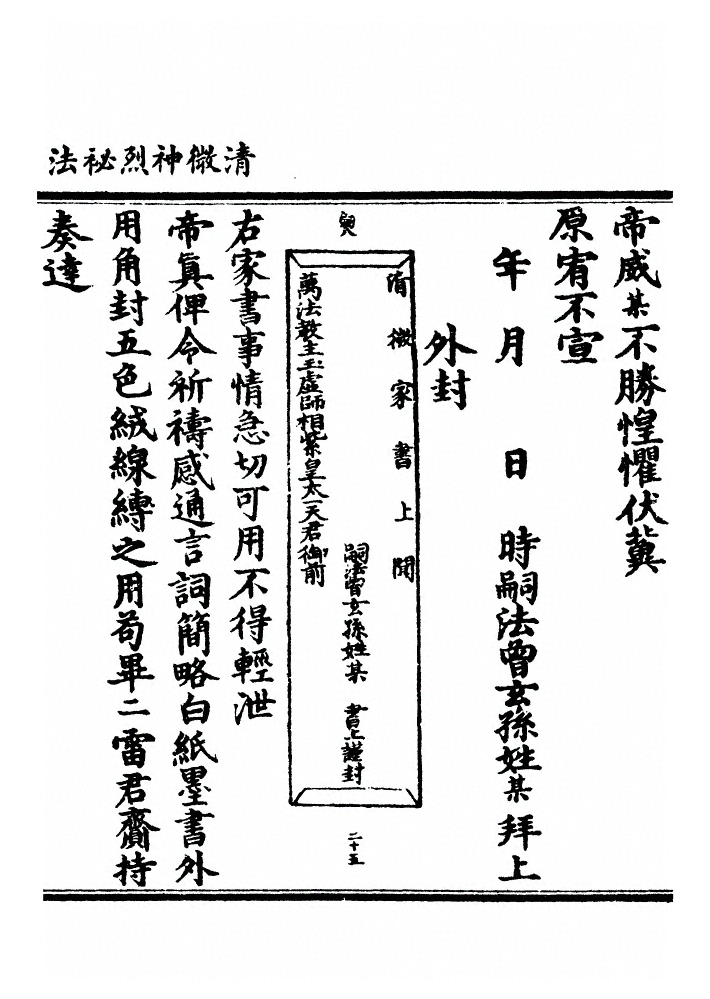 清微神烈祕法
帝威某不勝惶懼伏冀
原宥不宣
年　月　　日　時嗣法曾玄孫姓某拜上
外封
清微家書上聞
嗣法曾玄孫姓某　書上謹封
萬法教主玉虛師相紫皇太一天君御前
二十五
右家書事情急切可用不得輕泄
帝眞俾令祈禱感通言詞簡略白紙墨書外
用角封五色絨線縛之用苟畢二雷君齎持
奏達